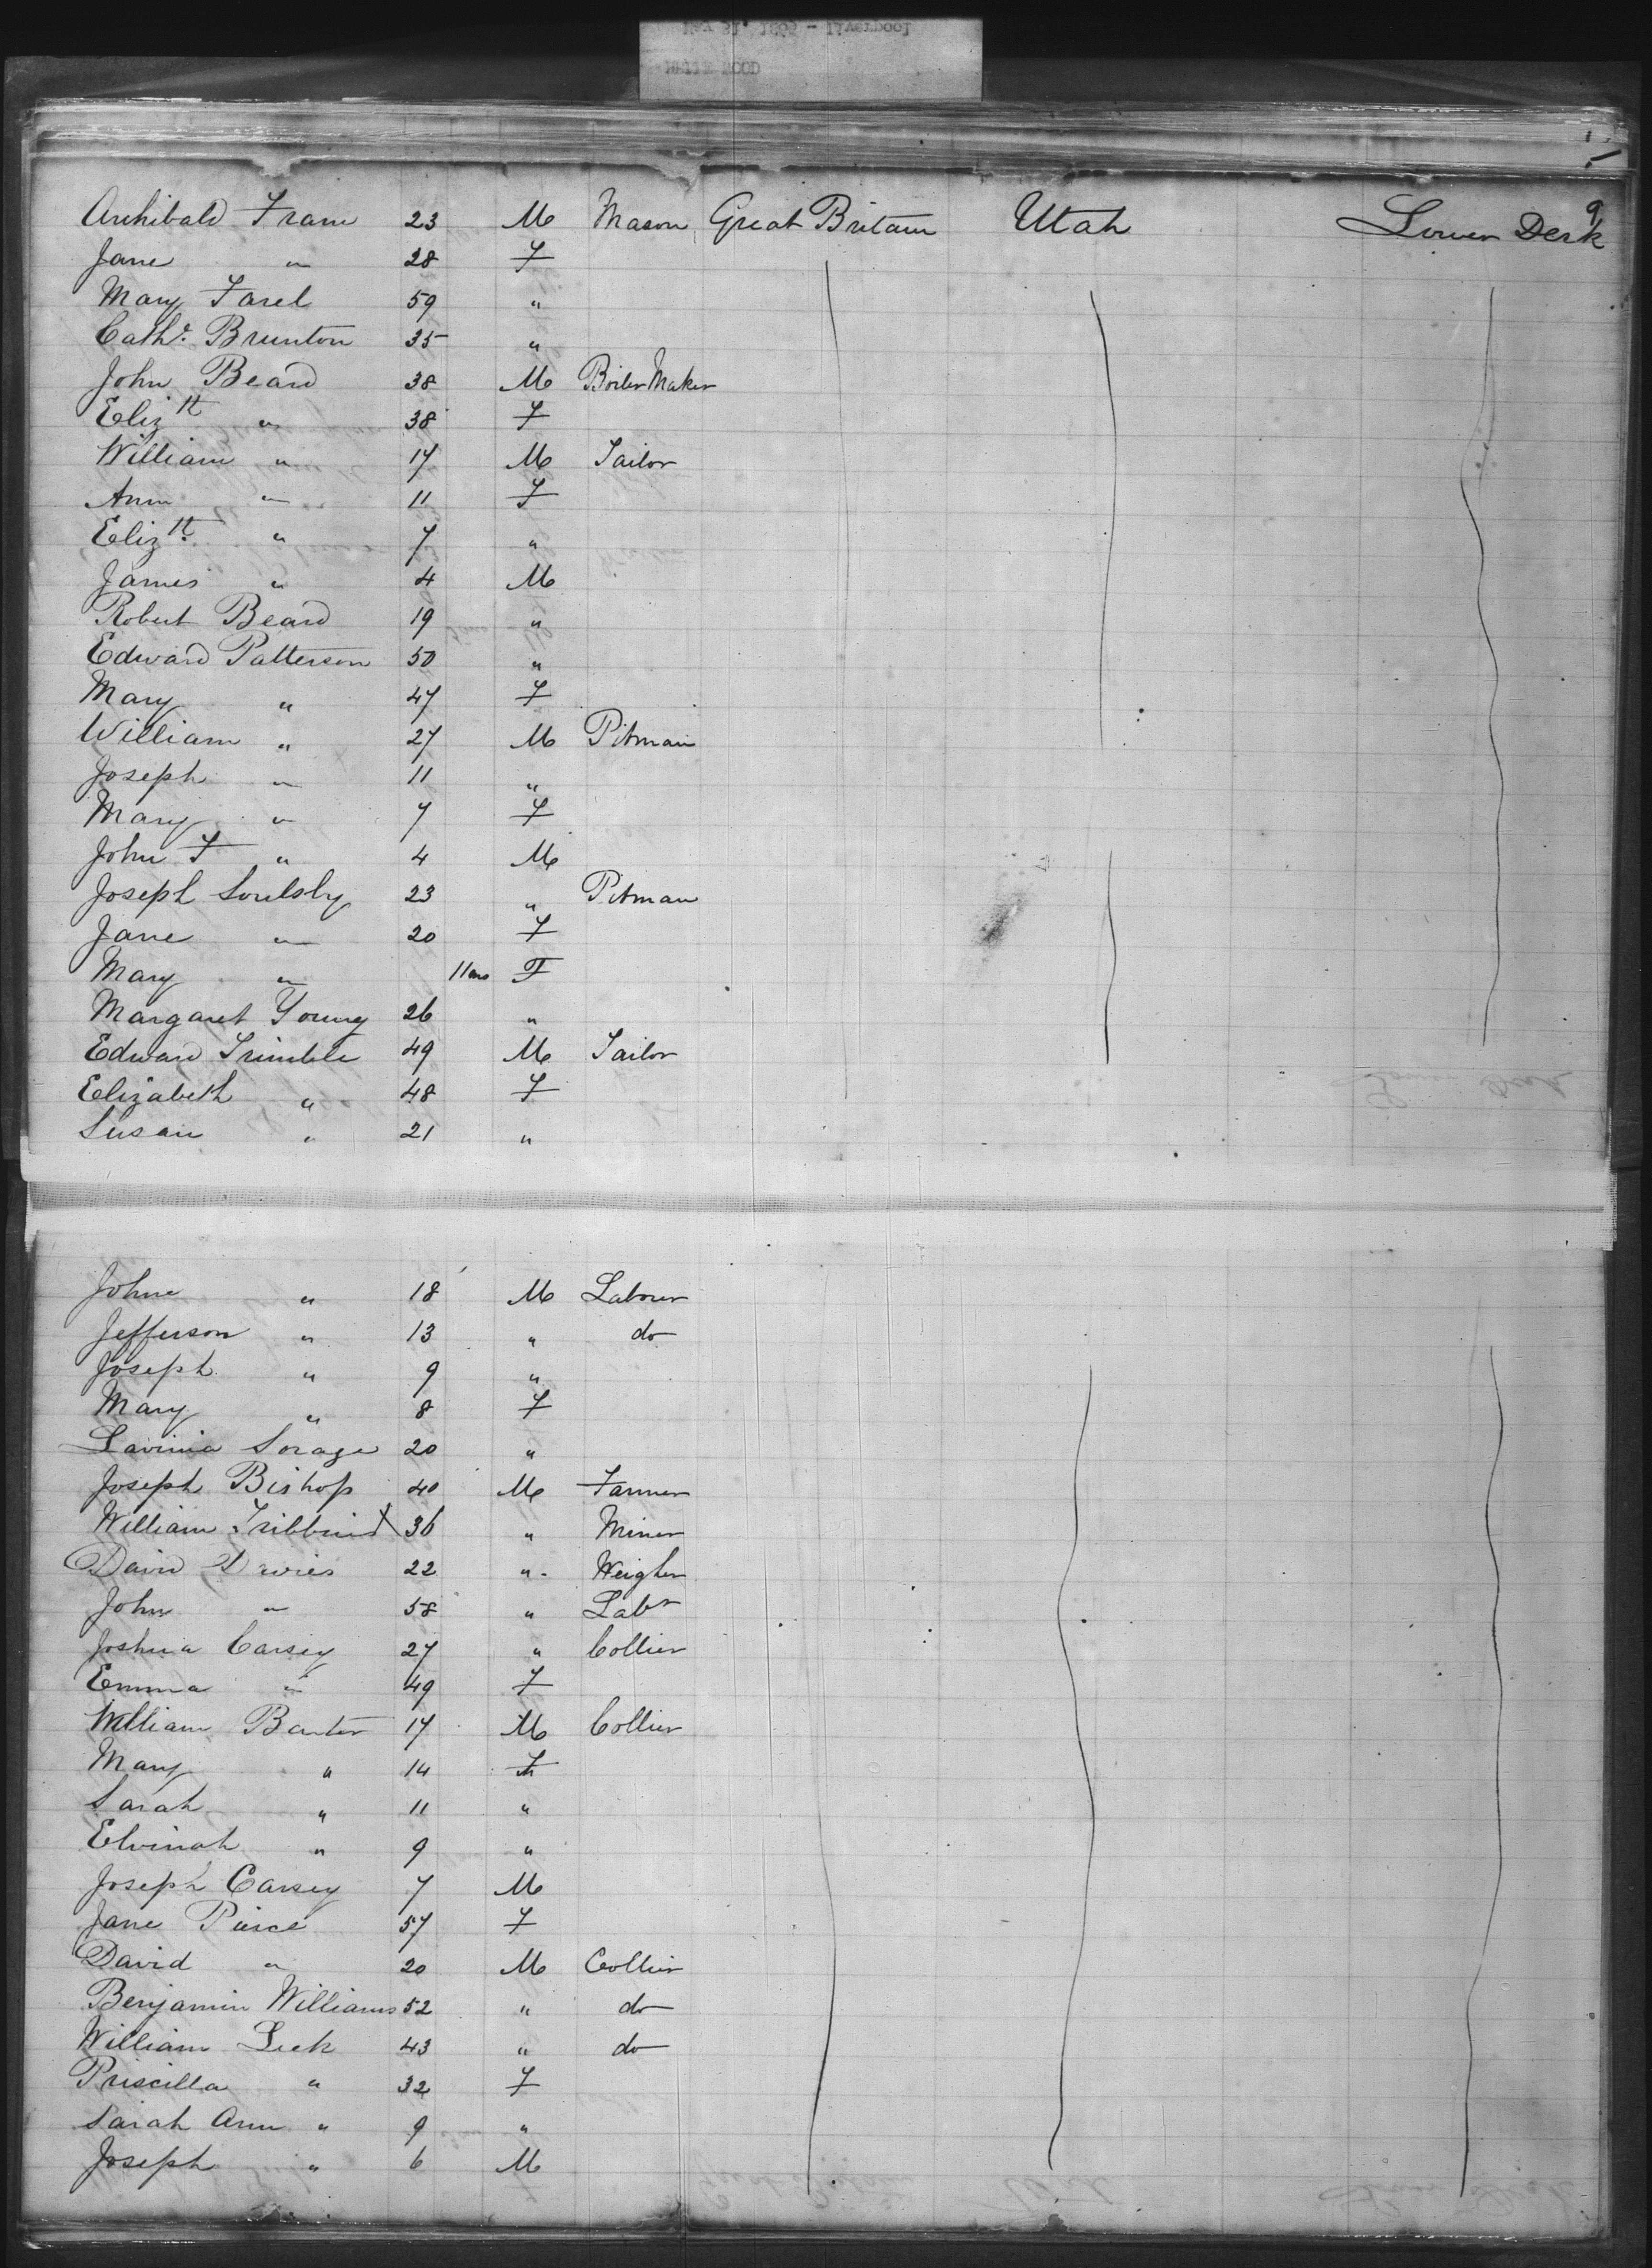 May 31. 1866 - Liverpool
WHITE WOOD
9
Archibald Frame 23 M Mason Great Britain Utah Lower Deck
Jane " 28 F
Mary Farel 59 "
Cathe. Brunton 35 "
John Beard 38 M Boiler Maker
Elizth " 38 F
William " 17 M Tailor
Ann " 11 F
Elizth " 7 "
James " 4 M
Robert Beard 19 "
Edward Patterson 50 "
Mary " 47 F
William " 27 M Pitman
Joseph " 11 "
Mary " 7 F
John F " 4 M
Joseph Soulsby 23 " Pitman
Jane " 20 F
Mary " 11 ms F
Margaret Young 26 "
Edward Trimble 49 M Tailor
Elizabeth " 48 F
Susan " 21 "
John " 18 M Labourer
Jefferson " 13 " do
Joseph " 9 "
Mary " 8 F
Lavinia Sorage 20 "
Joseph Bishop 40 M Farmer
William 36 " Miner
David Davies 22 " Weigher
John " 58 " Labr
Joshua Carsey 27 " Collier
Emma " 49 F
William Baxter 17 M Collier
Mary " 14 F
Sarah " 11 "
Elvinah " 9 "
Joseph Carsey 7 M
Jane Pierce 57 F
David " 20 M Collier
Benjamin Williams 52 " do
William Leek 43 " do
Priscilla " 32 F
Sarah Ann " 9 "
Joseph " 6 M